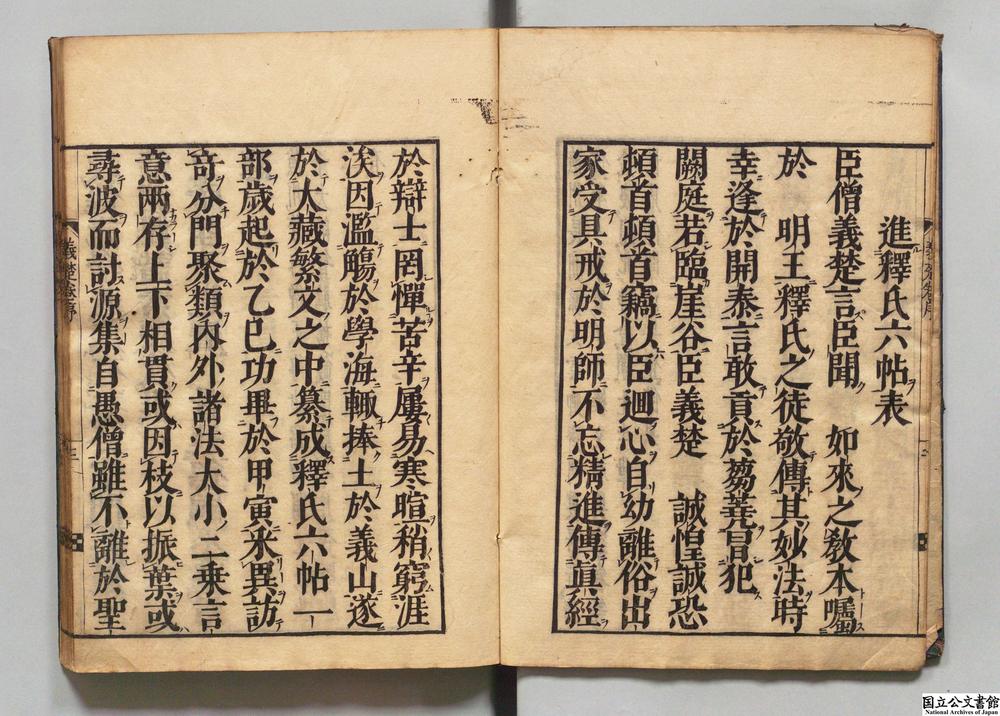 進釋氏六帖表
臣僧義楚言臣聞　如來之教本囑
於　明王釋氏之徒敬傳其妙法時
幸逢於開泰言敢貢於芻蕘冒犯
闕庭若臨崖谷臣義楚　誠惶誠恐
頓首頓首竊以臣迴心自幼離俗出
家受具戒於明師不忘精進傳真經
於辯士罔憚苦辛屢易寒暄稍窮涯
涘因濫觴於學海輒捧土於義山遂
於大藏繁文之中纂成釋氏六帖一
部歲起於乙巳功畢於甲寅采異訪
奇分門聚類內外諸法大小二乘言
意兩存上下相貫或因枝以振葉或
尋波而討源集自愚僧雖不離於聖
義楚卷序
国立公文書館
National Archives of Japan